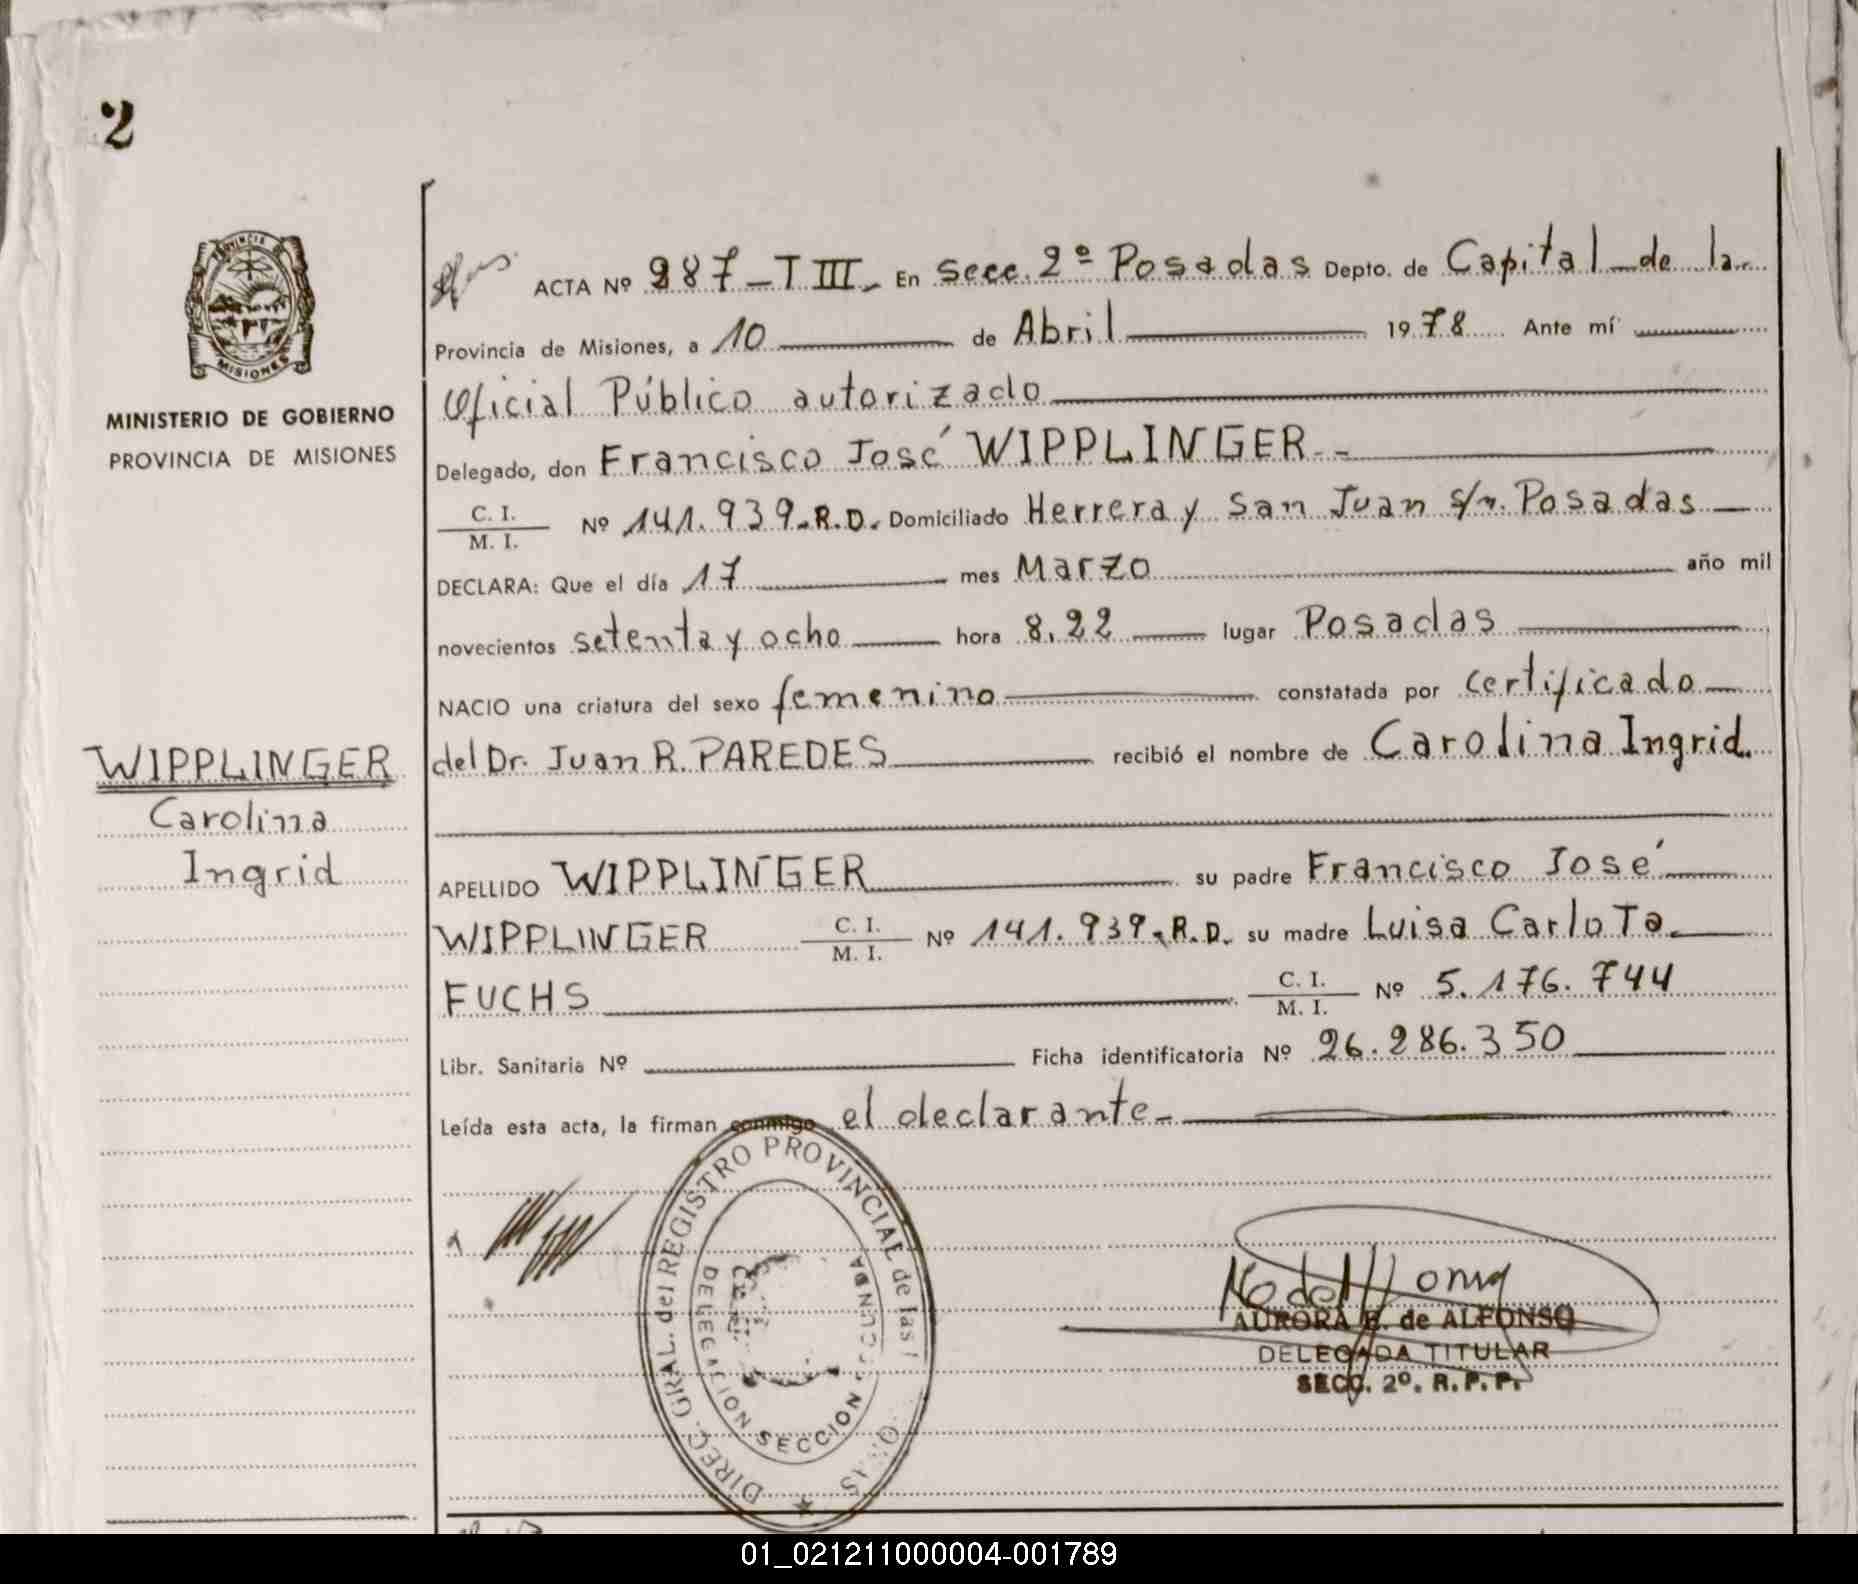 2
PROVINCIA DE
MISIONES
MINISTERIO DE GOBIERNO
PROVINCIA DE MISIONES
ACTA Nº 287-T III.- En Secc. 2º Posadas Depto. de Capital de la
Provincia de Misiones, a 10 de Abril 1978 Ante mí
Oficial Público autorizado
Delegado, don Francisco José WIPPLINGER.-
C. I.
M. I.
Nº 141.939.R.D. Domiciliado Herrera y San Juan s/n. Posadas
DECLARA: Que el día 17 mes Marzo año mil
novecientos setenta y ocho hora 8,22 lugar Posadas
NACIO una criatura del sexo femenino constatada por certificado
del Dr. Juan R. PAREDES recibió el nombre de Carolina Ingrid.
WIPPLINGER
Carolina
Ingrid
APELLIDO WIPPLINGER su padre Francisco José
WIPPLINGER C. I. M. I. Nº 141.939.R.D. su madre Luisa Carlota
FUCHS C. I. M. I. Nº 5.176.744
Libr. Sanitaria Nº Ficha identificatoria Nº 26.286.350
Leída esta acta, la firman conmigo el declarante-
DIREC. GRAL. del REGISTRO PROVINCIAL de las
DELEGACION SECCION SEGUNDA
AURORA E. de ALFONSO
DELEGADA TITULAR
SECC. 2º. R.P.P.
01_021211000004-001789